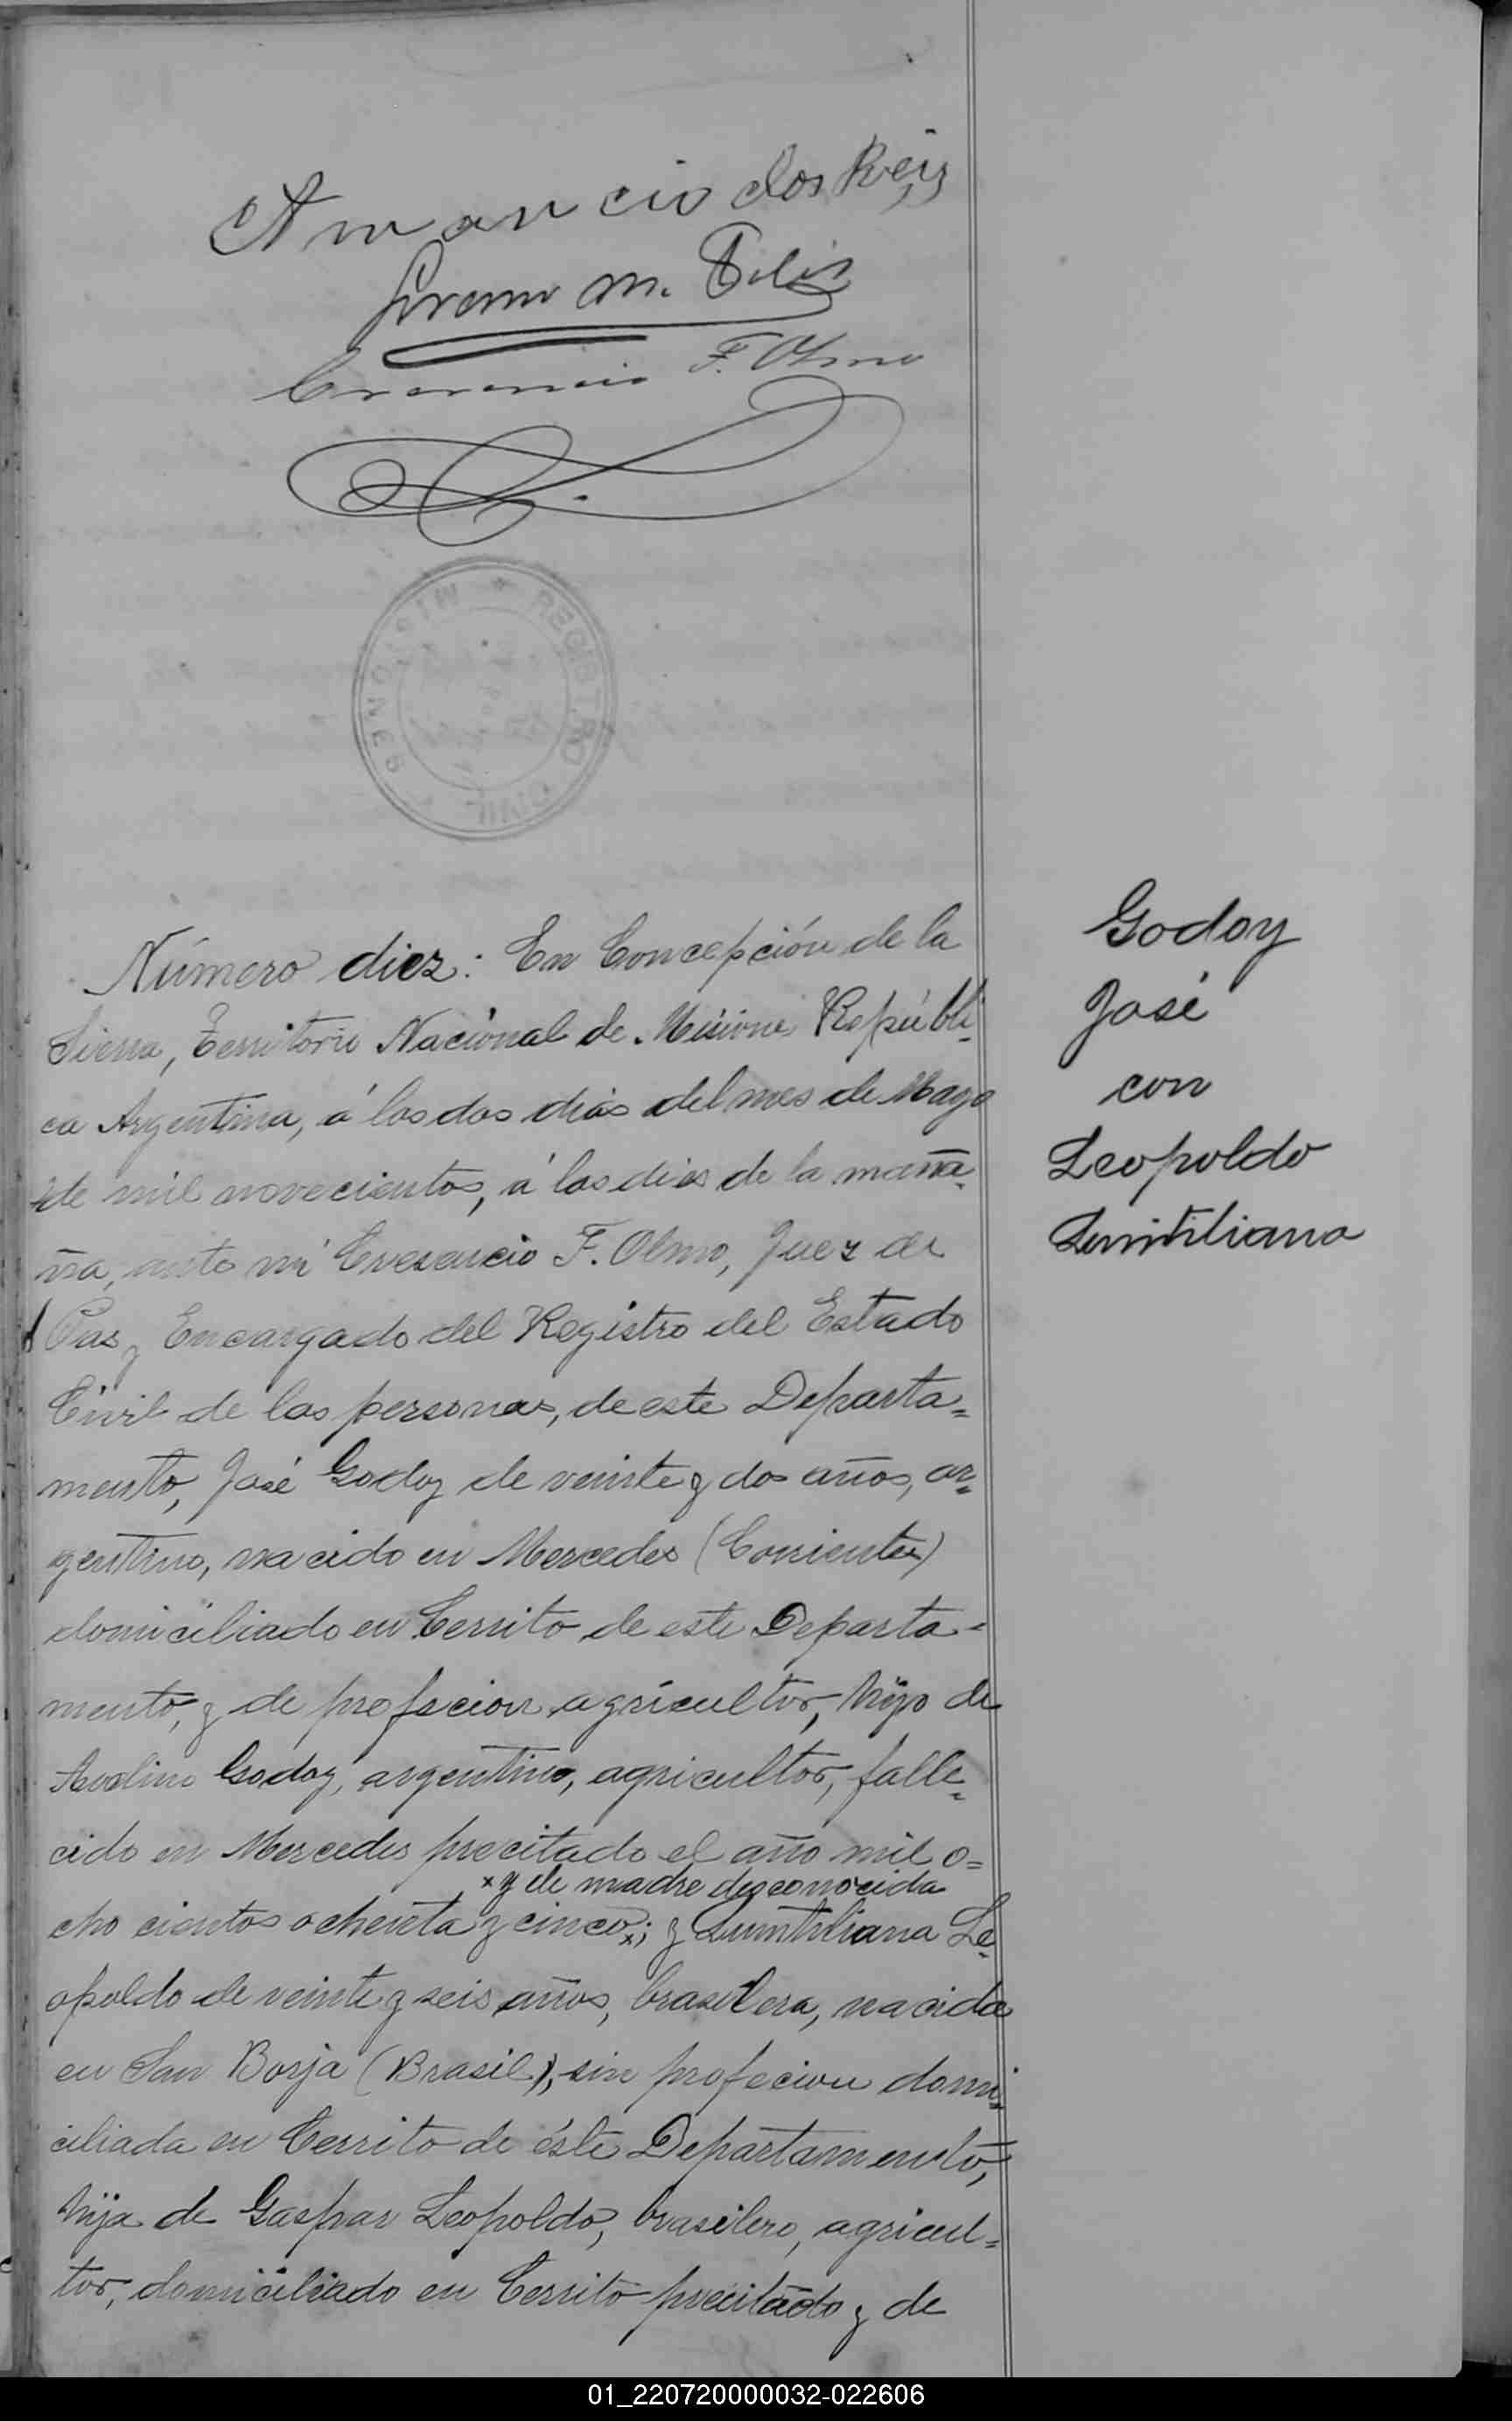 Amancio dos Reis
M.
F. Olmo
REGISTRO CIVIL
MISIONES
Número diez: En Concepción de la
Sierra, Territorio Nacional de Misiones Repúbli-
ca Argentina, á los dos dias del mes de Mayo
de mil novecientos, á las dies de la maña-
na, ante mi F. Olmo, Juez de
Pas y Encargado del Registro del Estado
Civil de las personas, de este Departa=
mento, José Godoy de veinte y dos años, ar=
gentino, nacido en Mercedes (Corrientes)
domiciliado en Cerrito de este Departa-
mento, y de profecion agricultor, hijo de
Avelino Godoy, argentino, agricultor, falle=
cido en Mercedes precitado el año mil o=
x y de madre desconocida
cho cientos ochenta y cinco x; y Leo-
opoldo de veinte y seis años, brasilera, nacida
en San Borja (Brasil), sin profecion domi=
ciliada en Cerrito de éste Departamento,
hija de Gaspar Leopoldo, brasilero, agricul=
tor, domiciliado en Cerrito precitado y de
Godoy
José
con
Leopoldo
01_220720000032-022606